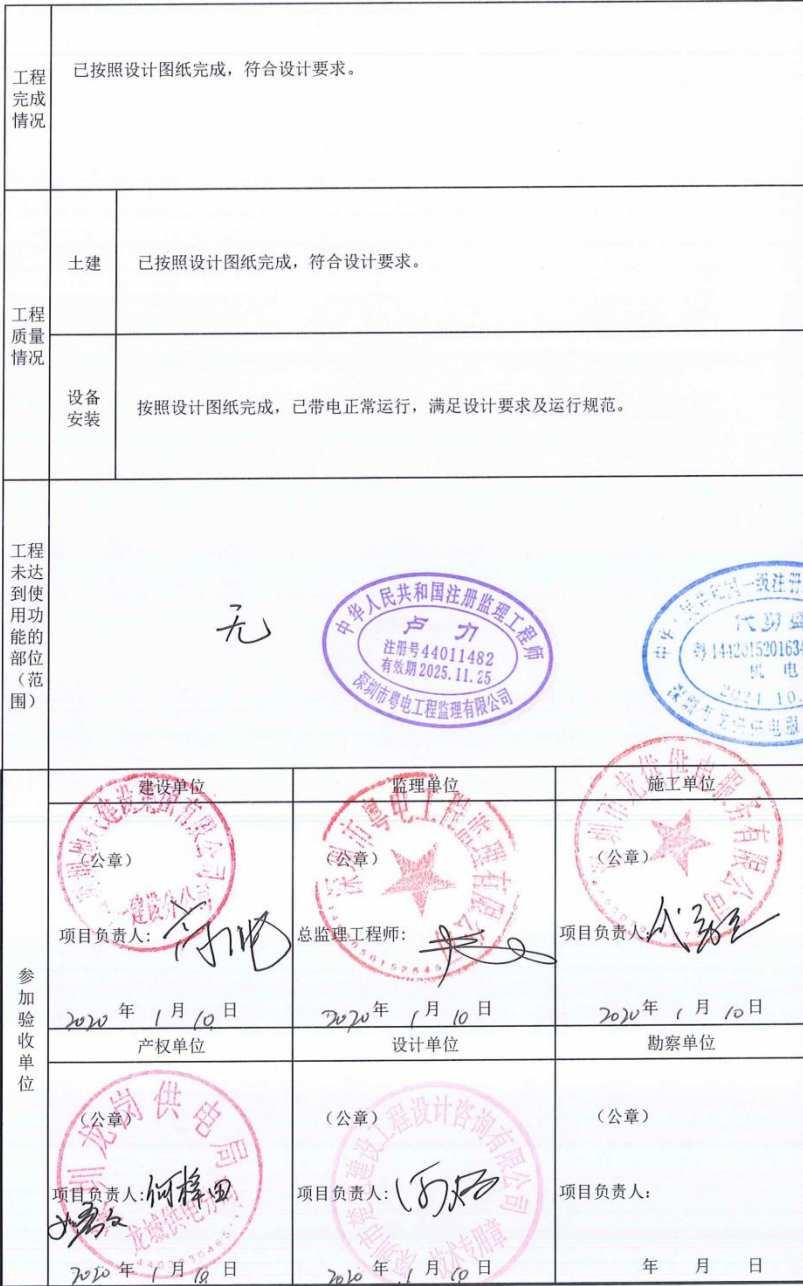 工程
完成
情况
已按照设计图纸完成，符合设计要求。
工程
质量
情况
土建
已按照设计图纸完成，符合设计要求。
设备
安装
按照设计图纸完成，已带电正常运行，满足设计要求及运行规范。
工程
未达
到使
用功
能的
部位
（范
围）
无
中华人民共和国注册监理工程师
卢力
注册号44011482
有效期2025.11.25
深圳市粤电工程监理有限公司
一级注册
机电
参加验收单位
建设单位
（公章）
建设分公
项目负责人：
2020 年 1 月 10 日
监理单位
（公章）
深圳市粤电工程监理有限公司
总监理工程师：
2020 年 1 月 10 日
施工单位
（公章）
供电服务有限公司
项目负责人：
2020 年 1 月 10 日
产权单位
（公章）
圳龙岗供电局
龙城供电所
项目负责人：
2020 年 1 月 10 日
设计单位
（公章）
建设工程设计咨询有限公司
技术专用章
项目负责人：
2020 年 1 月 10 日
勘察单位
（公章）
项目负责人：
年 月 日